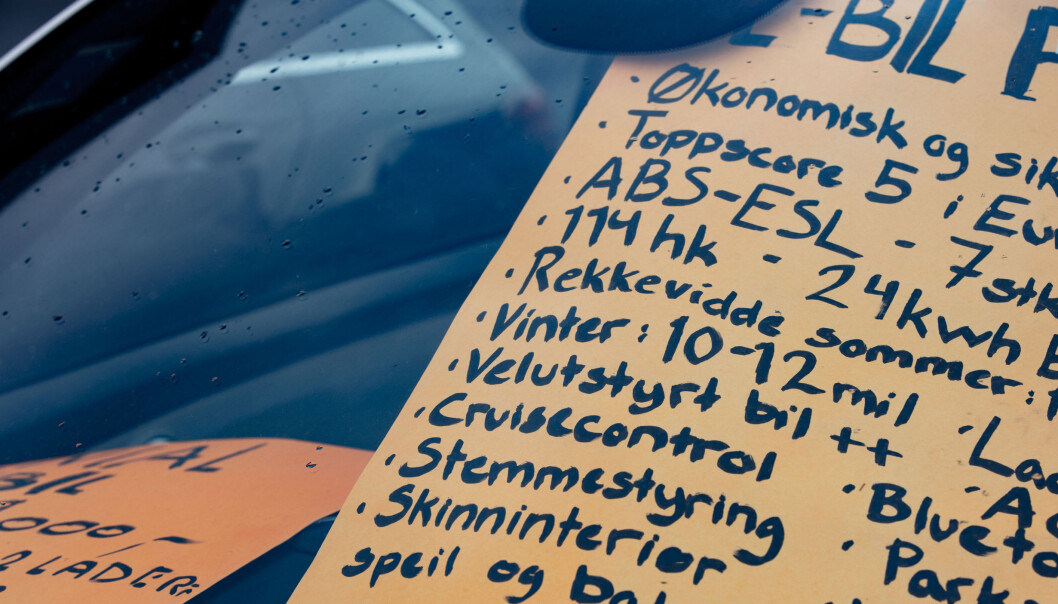 -BIL
· Økonomisk og sik
· Toppscore 5 i Eu
· ABS-ESL - 7 stk
· 114 hk - 24kwh
· Rekkevidde sommer:
· Vinter: 10-12 mil
· Velutstyrt bil ++
· Cruisecontrol
· Stemmestyring
· Skinninteriør
speil og
· La
· A
· Blueto
· Park
000,-
2 LADERE